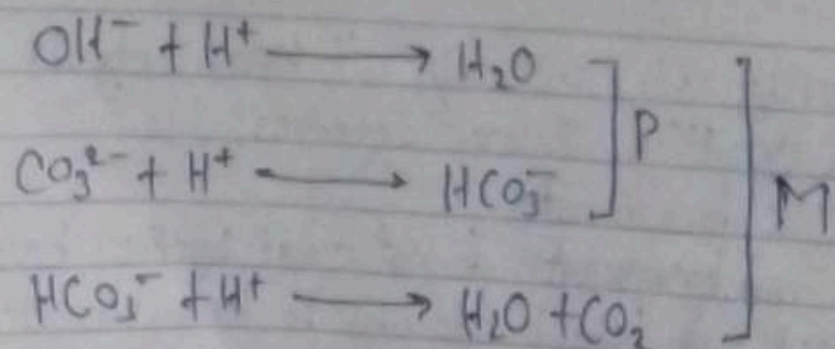 OH⁻ + H⁺ ⟶ H₂O
CO₃²⁻ + H⁺ ⟶ HCO₃⁻
P
M
HCO₃⁻ + H⁺ ⟶ H₂O + CO₂